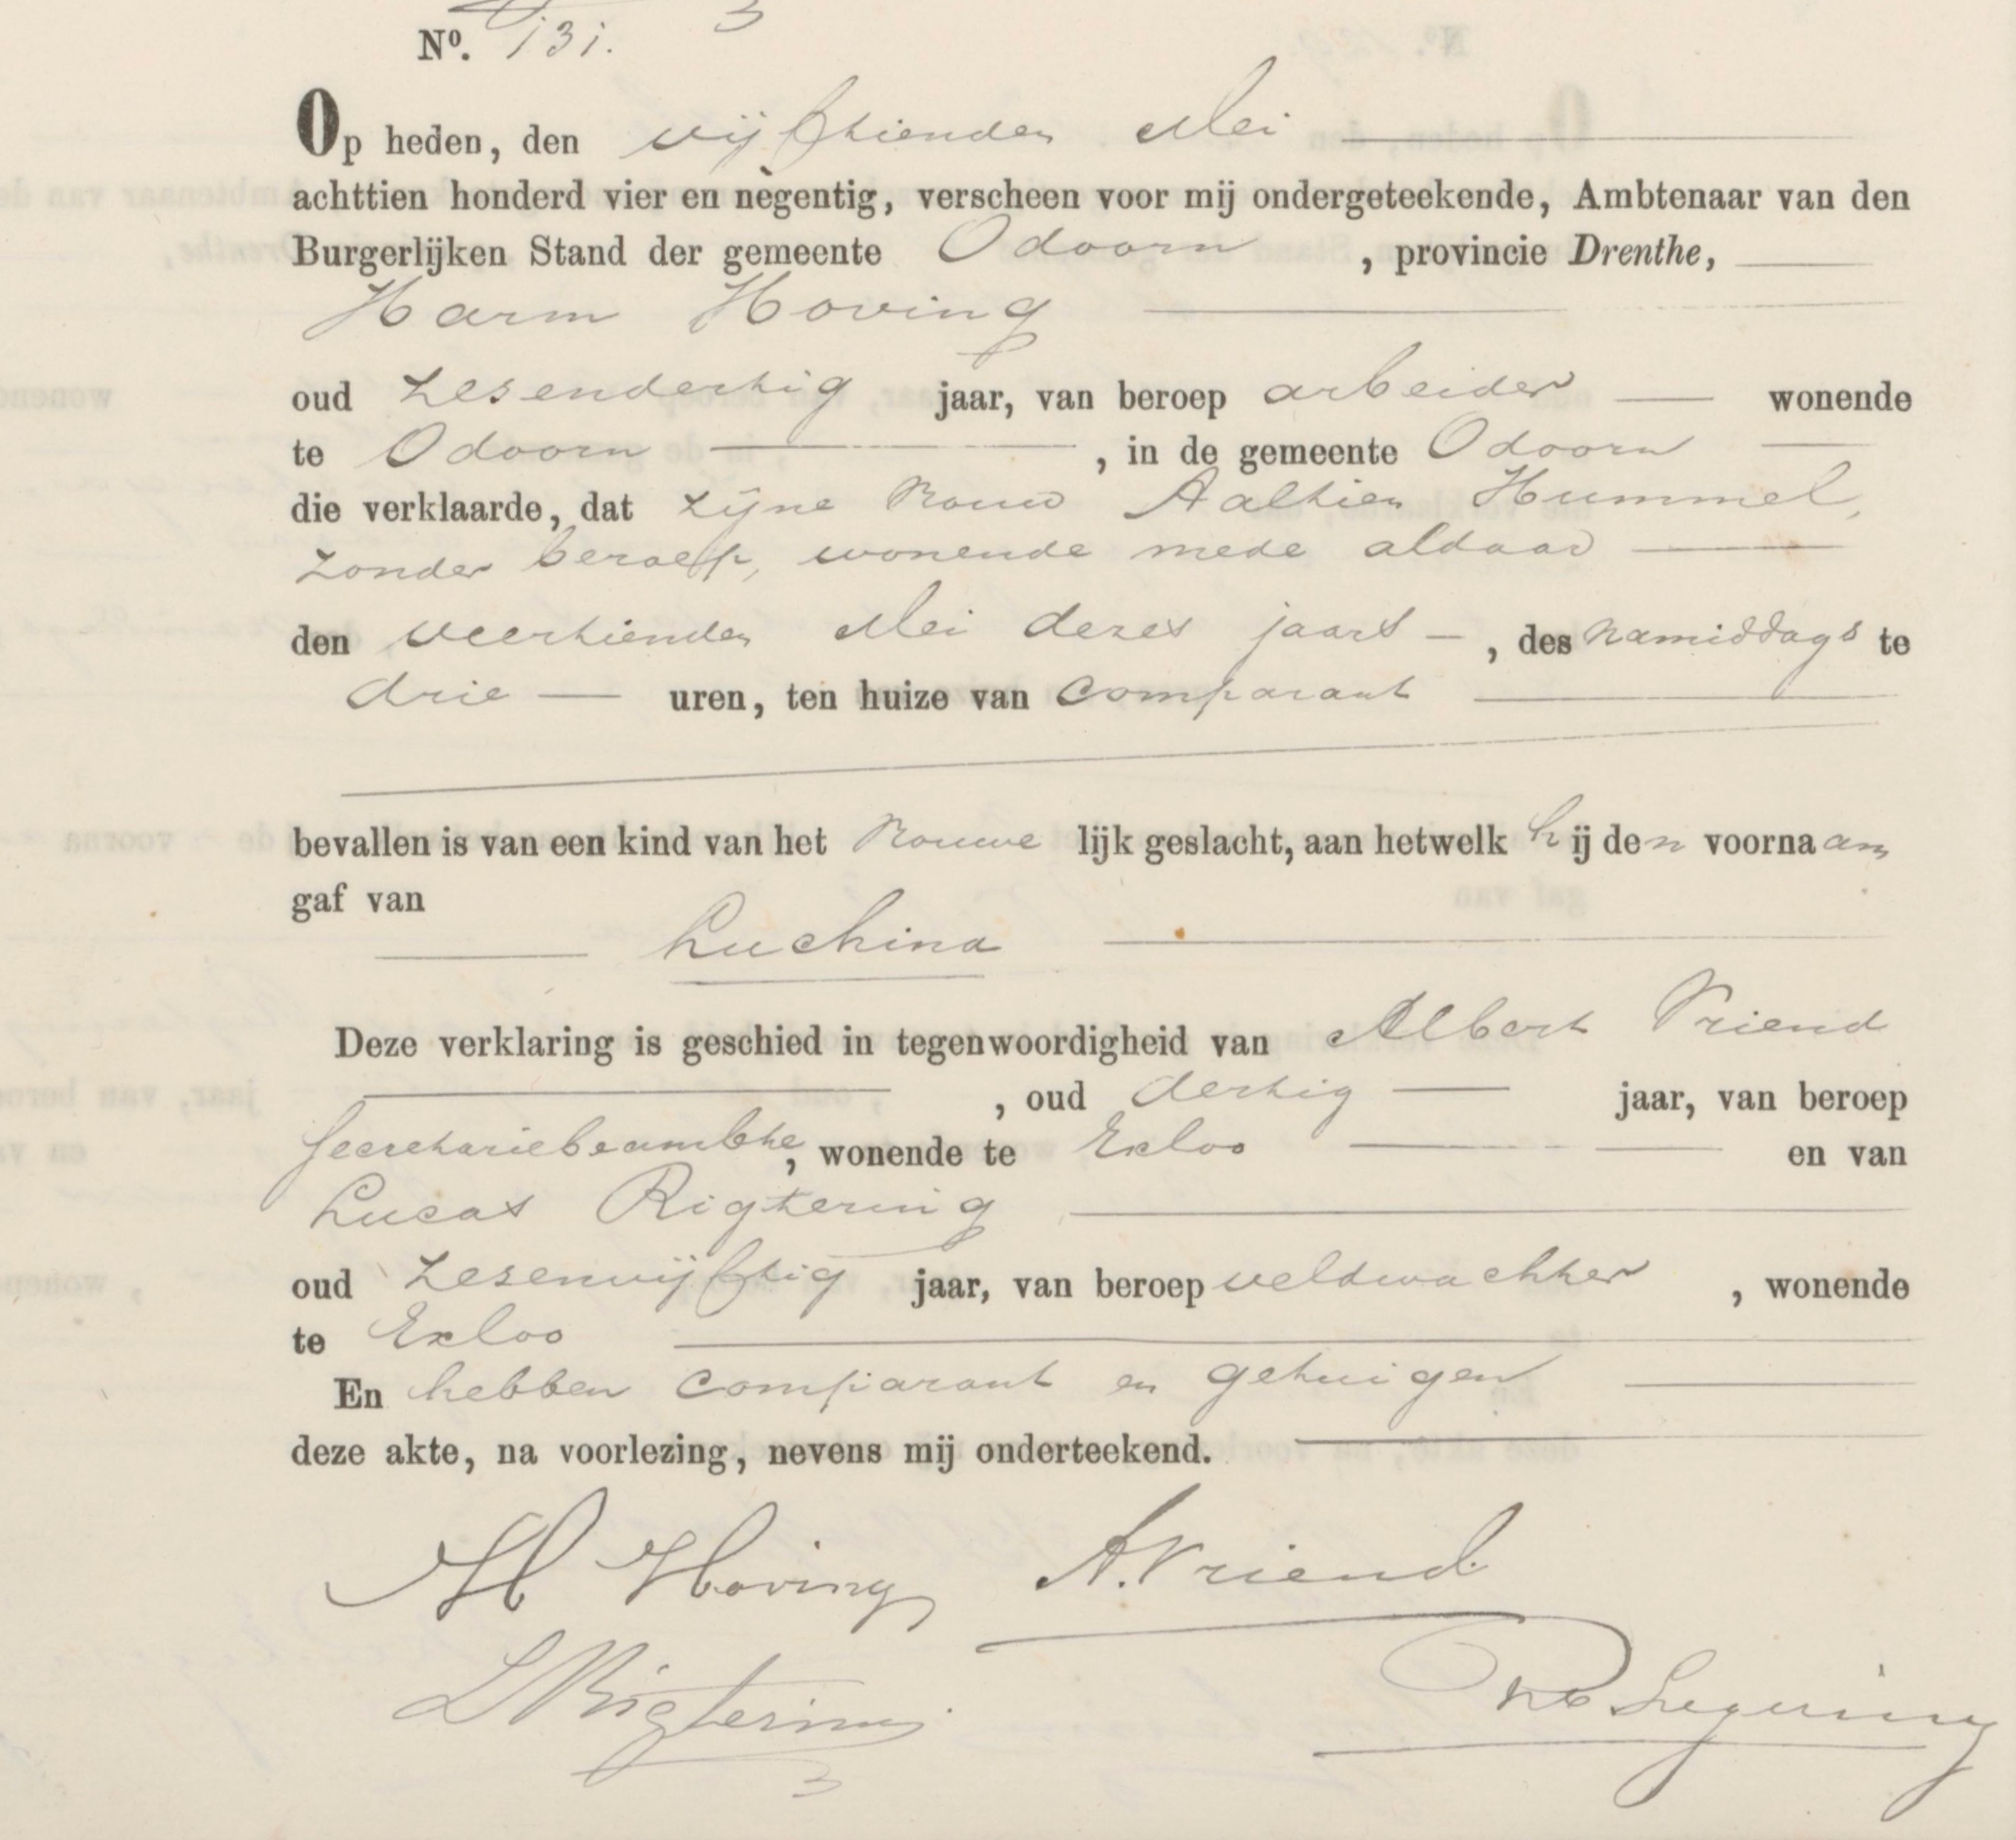 Nº. 131.
Op heden, den vijftienden Mei
achttien honderd vier en negentig, verscheen voor mij ondergeteekende, Ambtenaar van den
Burgerlijken Stand der gemeente Odoorn, provincie Drenthe,
Harm Hoving
oud zesendertig jaar, van beroep arbeider wonende
te Odoorn, in de gemeente Odoorn
die verklaarde, dat zijne Vrouw Aaltien Hummel,
zonder beroep, wonende mede aldaar
den veertienden Mei dezes jaars, des namiddags te
drie uren, ten huize van comparant
bevallen is van een kind van het Vrouwe lijk geslacht, aan hetwelk hij den voornaam
gaf van
Luchina
Deze verklaring is geschied in tegenwoordigheid van Albert Vriend
, oud dertig jaar, van beroep
secretariebeambte, wonende te Exloo en van
Lucas Rigtering
oud zesenvijftig jaar, van beroep veldwachter, wonende
te Exloo
En hebben comparant en getuigen
deze akte, na voorlezing, nevens mij onderteekend.
H Hoving A. Vriend
L Rigtering